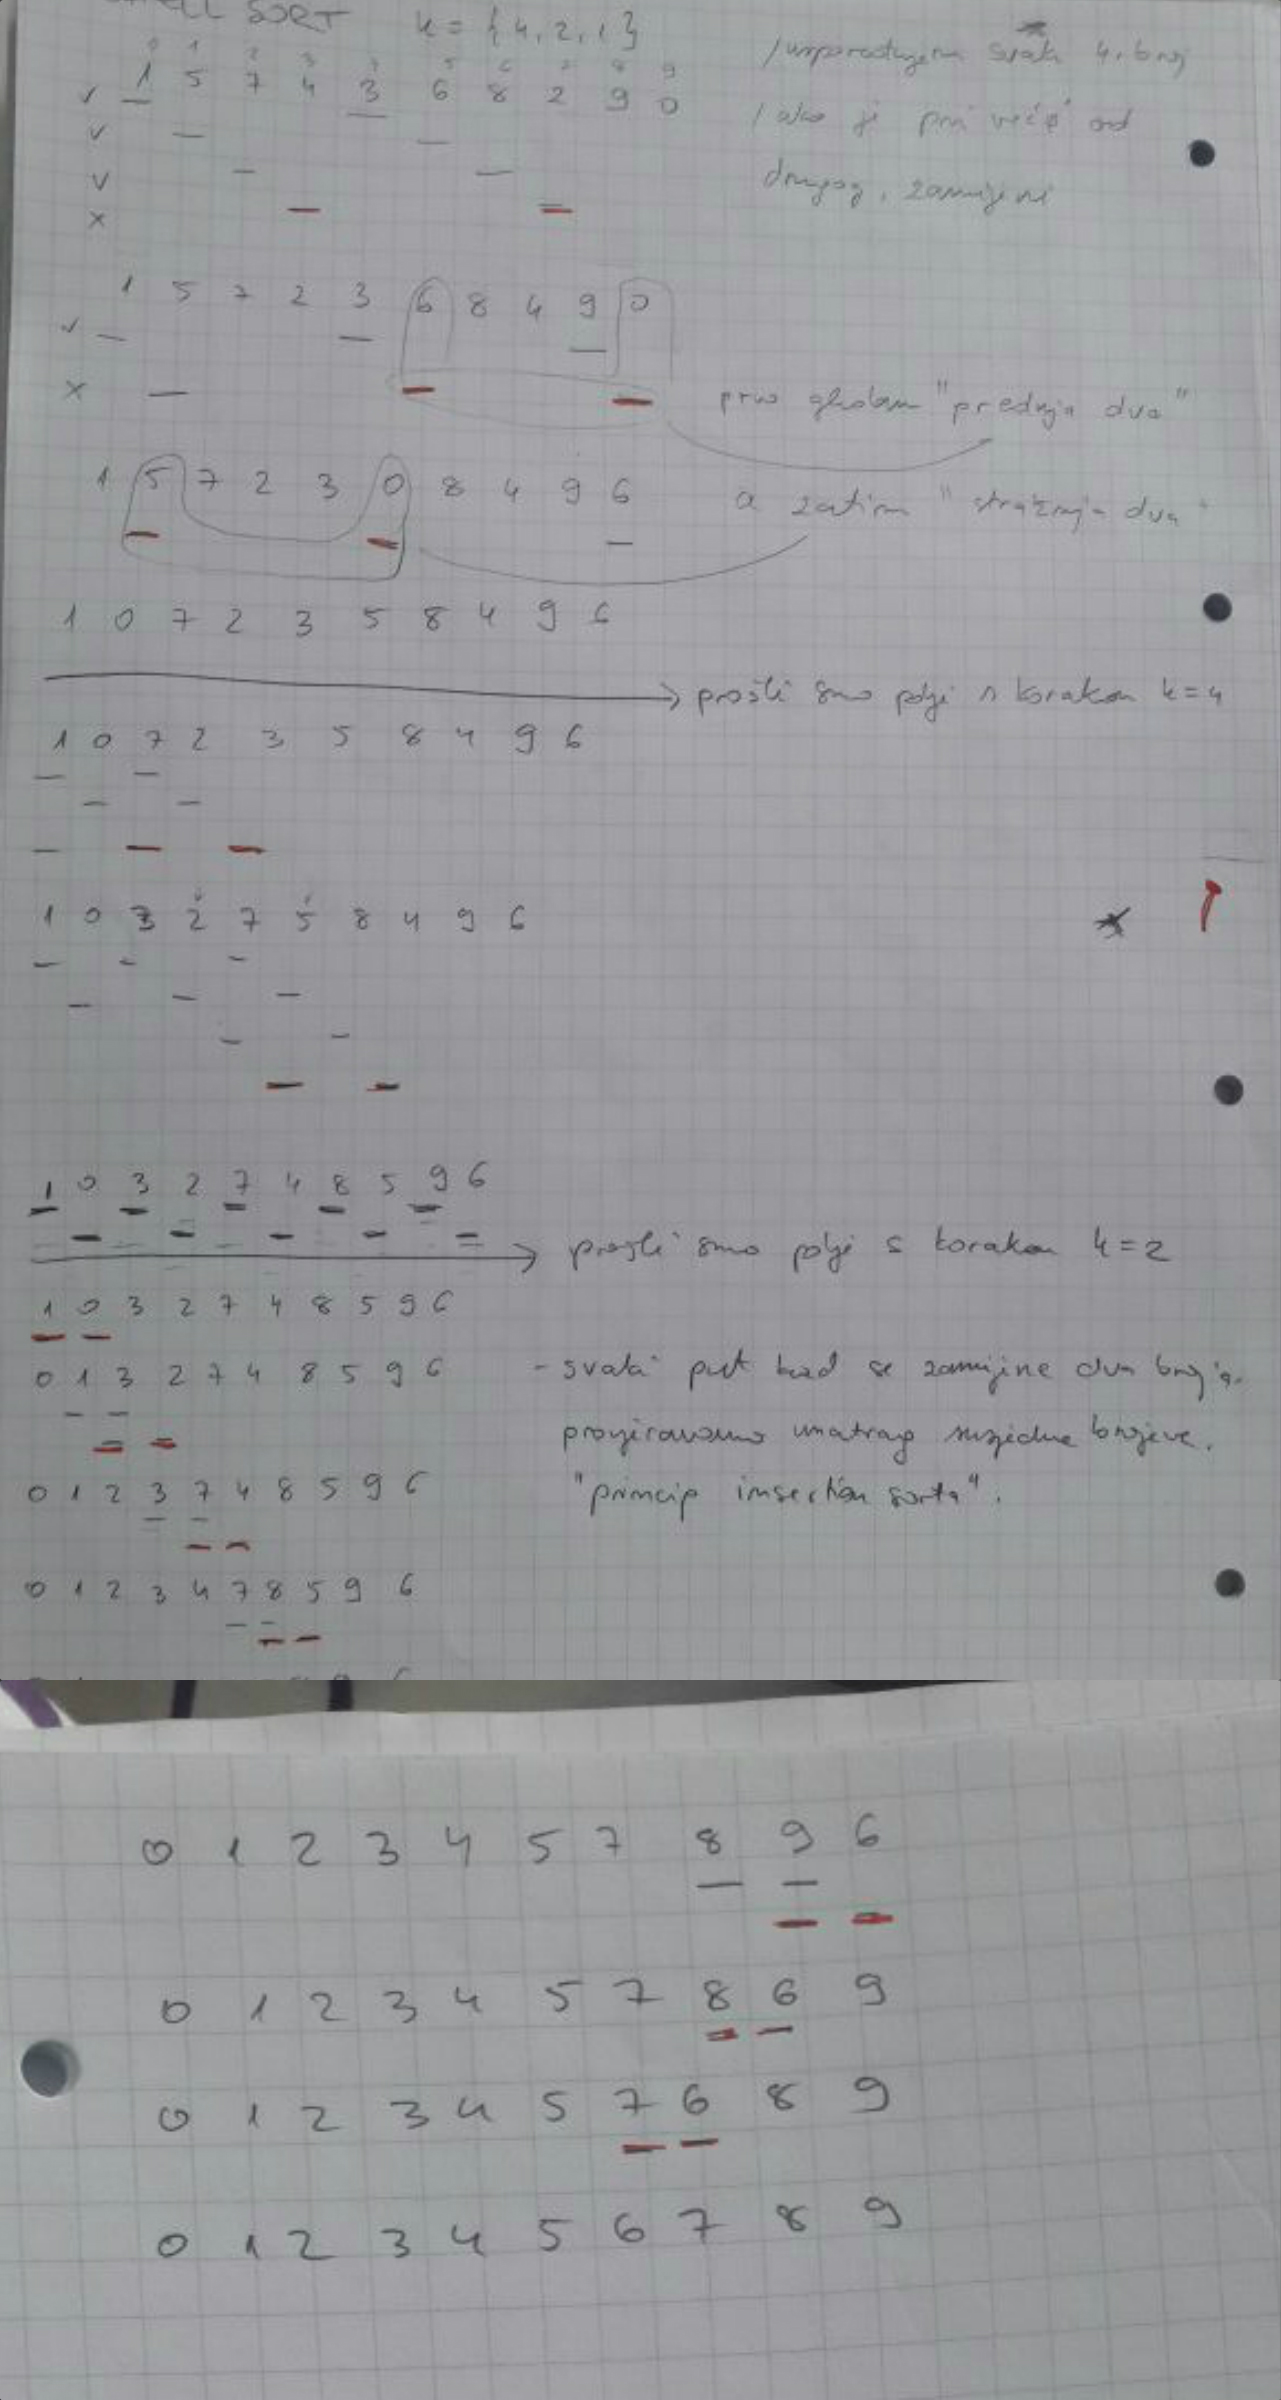 SHELL SORT k = {4, 2, 1}
0 1 2 3 4 5 6 7 8 9
1 5 7 4 3 6 8 2 9 0
/uspoređujemo svaki 4. broj
/ako je prvi veći od
drugog, zamijeni
1 5 7 2 3 6 8 4 9 0
prvo gledam "prednja dva"
1 5 7 2 3 0 8 4 9 6
a zatim "stražnja dva"
1 0 7 2 3 5 8 4 9 6
prošli smo polje s korakom k=4
1 0 7 2 3 5 8 4 9 6
1 0 3 2 7 5 8 4 9 6
1 0 3 2 7 4 8 5 9 6
prošli smo polje s korakom k=2
1 0 3 2 7 4 8 5 9 6
0 1 3 2 7 4 8 5 9 6
- svaki put kad se zamijene dva broja
provjeravamo unatrag susjedne brojeve.
0 1 2 3 7 4 8 5 9 6
"princip insertion sorta".
0 1 2 3 4 7 8 5 9 6
0 1 2 3 4 5 7 8 9 6
0 1 2 3 4 5 7 8 6 9
0 1 2 3 4 5 7 6 8 9
0 1 2 3 4 5 6 7 8 9